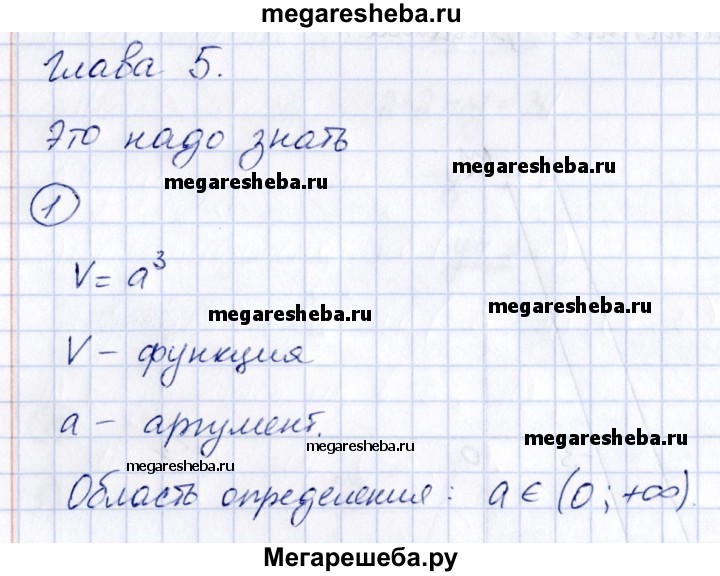 megaresheba.ru
Глава 5.
Это надо знать
megaresheba.ru
megaresheba.ru
1
V = a³
megaresheba.ru
megaresheba.ru
V – функция
a – аргумент.
megaresheba.ru
megaresheba.ru
megaresheba.ru
Область определения: a ∈ (0; +∞).
Мегарешеба.ру